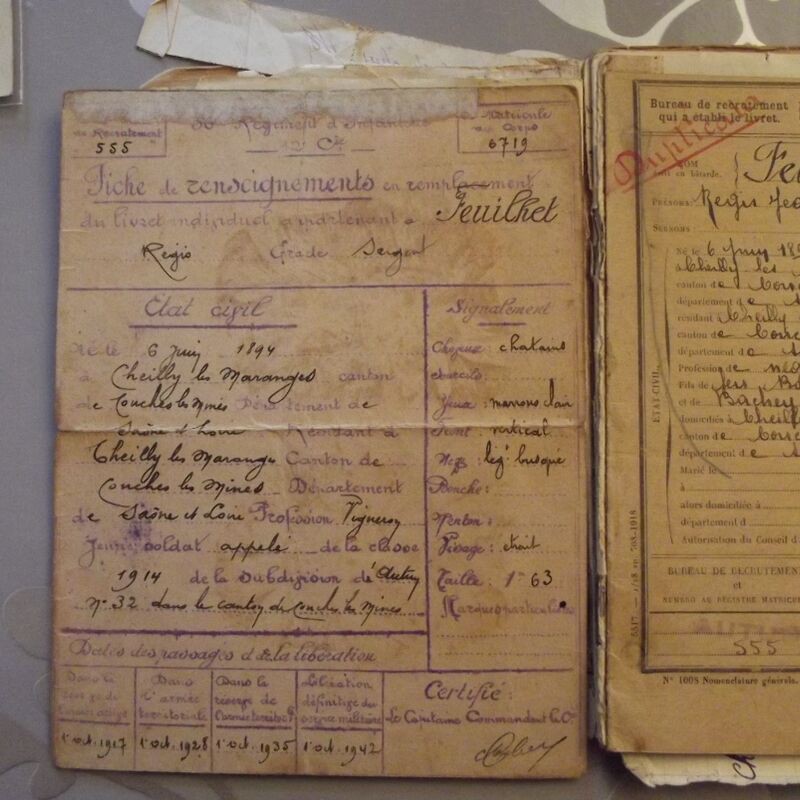 au Recrutement
555
Régiment d'Infanterie
12e Cie
Matricule
au Corps
6719
Fiche de renseignements en remplacement
du livret individuel appartenant à Feuilhet
Régis Grade Sergent
Etat civil
Né le 6 Juin 1894
à Cheilly les Maranges canton
de Couches les Mines Département de
Saône et Loire Résidant à
Cheilly les Maranges Canton de
Couches les Mines Département
de Saône et Loire Profession Vigneron
Jeune soldat appelé de la classe
1914 de la subdivision d'Autun
N° 32 dans le canton de Couches les Mines
Signalement
Cheveux : chatains
sourcils :
Yeux : marrons clair
Front vertical
Nez : leg' busqué
Bouche :
Menton :
Visage : étroit
Taille : 1m 63
Marques particulières
Dates des passages et de la libération
Dans la
réserve de
l'armée active
1 oct. 1917
Dans
l'armée
territoriale
1 oct. 1928
Dans la
réserve de
l'armée territle
1 oct. 1935
Libération
définitive du
service militaire
1 oct. 1942
Certifié :
Le Capitaine Commandant la Cie
Bureau de recrutement
qui a établi le livret.
Duplicata
NOM
écrit en bâtarde.
PRÉNOMS: Régis
SURNOMS
Né le 6 Juin
à Cheilly les
canton de
département de
résidant à Cheilly
canton de
département de
Profession de
Fils de
et de
domiciliés à Cheilly
canton de
département de
Marié le
à
alors domiciliée à
département d
Autorisation du Conseil d
ÉTAT CIVIL
BUREAU DE RECRUTEMENT
et
NUMÉRO AU REGISTRE MATRICULE
555
N° 1008 Nomenclature générale.